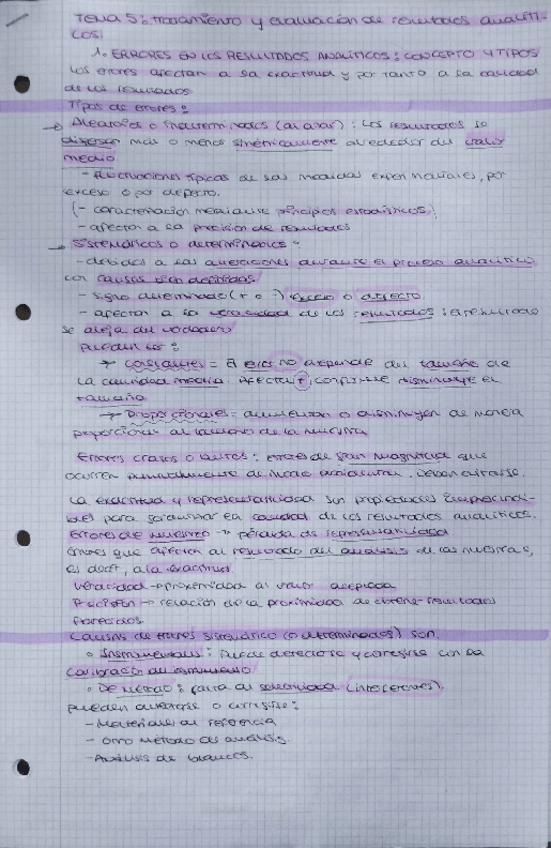 Tema 5: tratamiento y evaluación de resultados analíti-
cos.
1. ERRORES EN LOS RESULTADOS ANALÍTICOS: CONCEPTO Y TIPOS
Los errores afectan a la exactitud y por tanto a la calidad
de los resultados.
Tipos de errores:
→ Aleatorios o indeterminados (al azar): Los resultados se
dispersan más o menos simétricamente alrededor del valor
medio.
- Fluctuaciones típicas de las medidas experimentales, por
exceso o por defecto.
(- caracterización mediante principios estadísticos.)
- afectan a la precisión de resultados
→ Sistemáticos o determinados:
- debidos a las alteraciones durante el proceso analítico
con causas bien definidas.
- signo determinado (+ o -) exceso o defecto
- afectan a la veracidad de los resultados: el resultado
se aleja del verdadero
Pueden ser:
→ Constantes = El error no depende del tamaño de
la cantidad medida. Afectan +, conforme disminuye el
tamaño
→ Proporcionales = aumentan o disminuyen de manera
proporcional al tamaño de la muestra
Errores crasos o brutos: errores de gran magnitud que
ocurren puntualmente de modo accidental. Deben evitarse.
La exactitud y representatividad son propiedades imprescindi-
bles para garantizar la calidad de los resultados analíticos.
Errores de muestreo → pérdida de representatividad
Errores que afectan al resultado del análisis de las muestras,
es decir, a la exactitud.
Veracidad - proximidad al valor aceptado
Precisión → relación de la proximidad de obtener resultados
parecidos.
Causas de errores sistemático (o determinados) son.
• Instrumentales: Puede detectarse y corregirse con la
calibración del instrumento
• De método: falta de selectividad (interferentes).
pueden detectarse o corregirse:
- Materiales de referencia
- Otro método de análisis.
- Análisis de blancos.